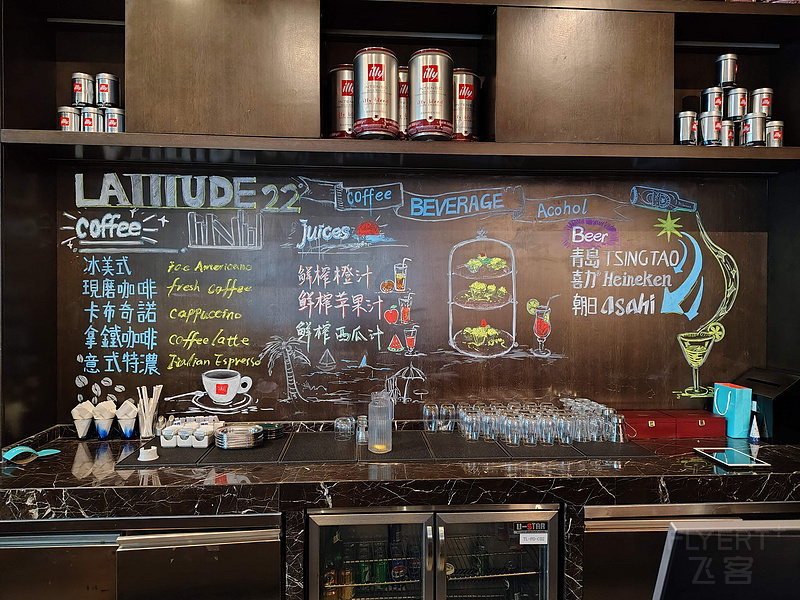 illy
illy
illy
LATITUDE 22°
coffee
BEVERAGE
Acohol
coffee
冰美式 ice Americano
現磨咖啡 fresh coffee
卡布奇諾 cappuccino
拿鐵咖啡 coffee latte
意式特濃 Italian Espresso
juices
鲜榨橙汁
鲜榨苹果汁
鲜榨西瓜汁
Beer
青島 TSINGTAO
喜力 Heineken
朝日 asahi
U-STAR
TL-PO-C02
FLYERT
飞客